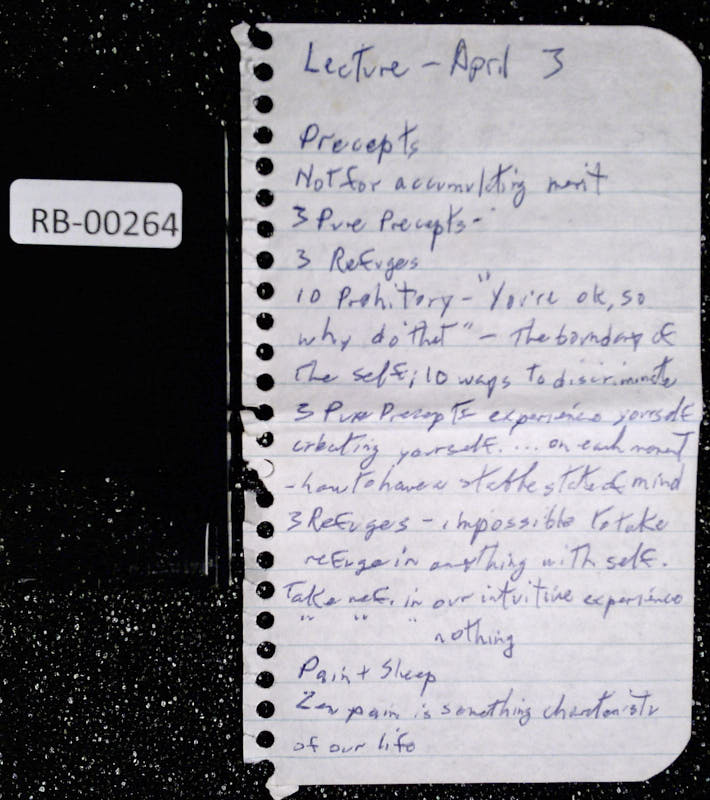 Lecture - April 3
Precepts
Not for accumulating merit
RB-00264
3 Pure Precepts -
3 Refuges
10 Prohitory - "You're ok, so
why do that" - The boundary of
the self; 10 ways to discriminate
3 Pure Precepts experience yourself
creating yourself. ... on each moment
- how to have a stable state of mind
3 Refuges - impossible to take
refuge in anything with self.
Take ref. in our intuitive experience
" " " nothing
Pain + Sleep
Zen pain is something
of our life